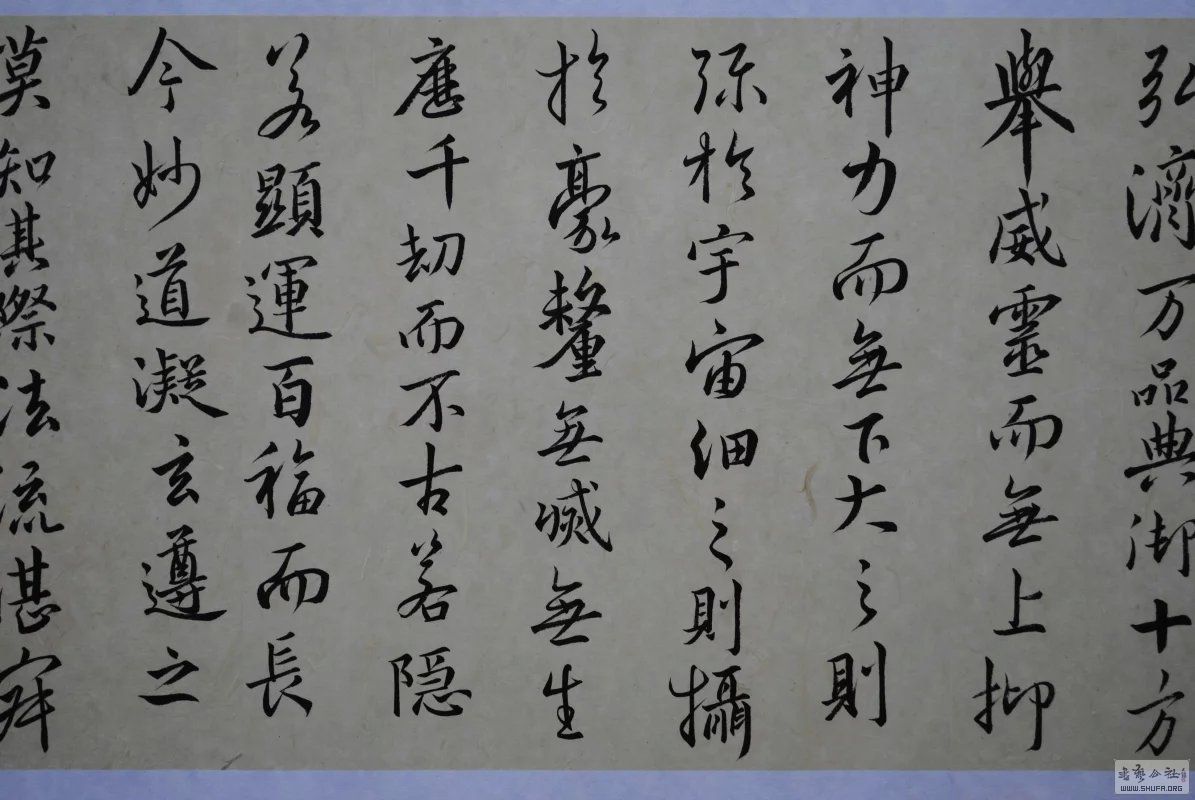 弘濟万品典御十方
舉威靈而無上抑
神力而無下大之則
弥於宇宙細之則攝
於豪釐無滅無生
歷千劫而不古若隐
若顯運百福而長
今妙道凝玄遵之
莫知其際法流湛寂
WWW.SHUFA.ORG